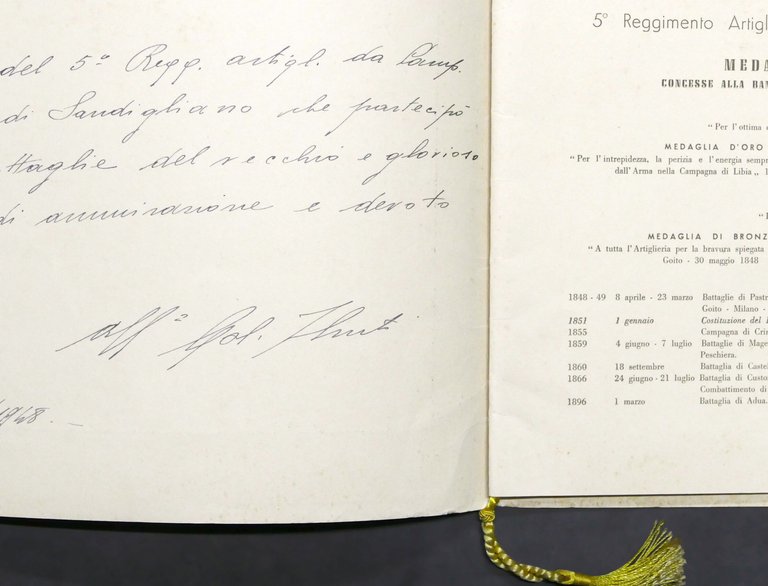 del 5º Regg. artigl. da Camp.
di Sandigliano che partecipò
ttaglie del vecchio e glorioso
di ammirazione e devoto
aff.º Col.
1948
5º Reggimento Artigl
MEDA
CONCESSE ALLA BAN
"Per l'ottima
MEDAGLIA D'ORO
"Per l'intrepidezza, la perizia e l'energia semp
dall'Arma nella Campagna di Libia„ 1
MEDAGLIA DI BRONZ
"A tutta l'Artiglieria per la bravura spiegata
Goito - 30 maggio 1848
1848 - 49 8 aprile - 23 marzo Battaglie di Pastr
Goito - Milano -
1851 1 gennaio Costituzione del
1855 Campagna di Cri
1859 4 giugno - 7 luglio Battaglie di Mage
Peschiera.
1860 18 settembre Battaglia di Castel
1866 24 giugno - 21 luglio Battaglia di Custo
Combattimento di
1896 1 marzo Battaglia di Adua.